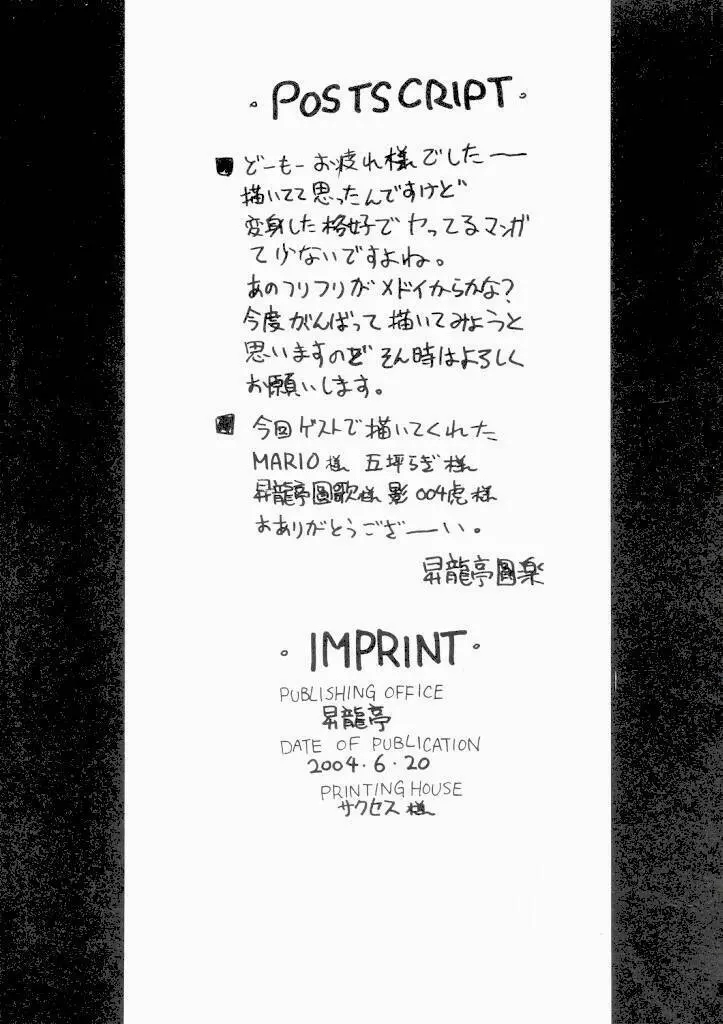 ・POSTSCRIPT・
■どーもーお疲れ様でしたー
描いてて思ったんですけど
変身した格好でヤってるマンガ
て少ないですよね。
あのフリフリがメドイからかな?
今度がんばって描いてみようと
思いますのど そん時はよろしく
お願いします。
■今回ゲストで描いてくれた
MARIO様 五坪らぎ様
昇龍亭圓歌様 影004虎様
おありがとうござーい。
昇龍亭圓楽
・IMPRINT・
PUBLISHING OFFICE
昇龍亭
DATE OF PUBLICATION
2004・6・20
PRINTING HOUSE
サクセス 様